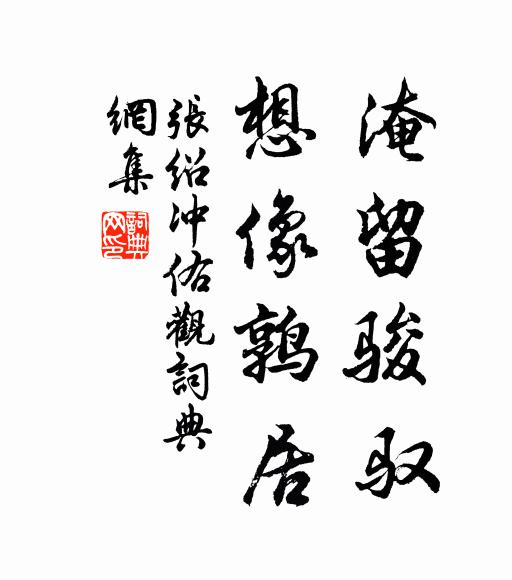 淹留骏驭
想像鹑居
張绍冲佑觀詞典
網集
詞典
网印